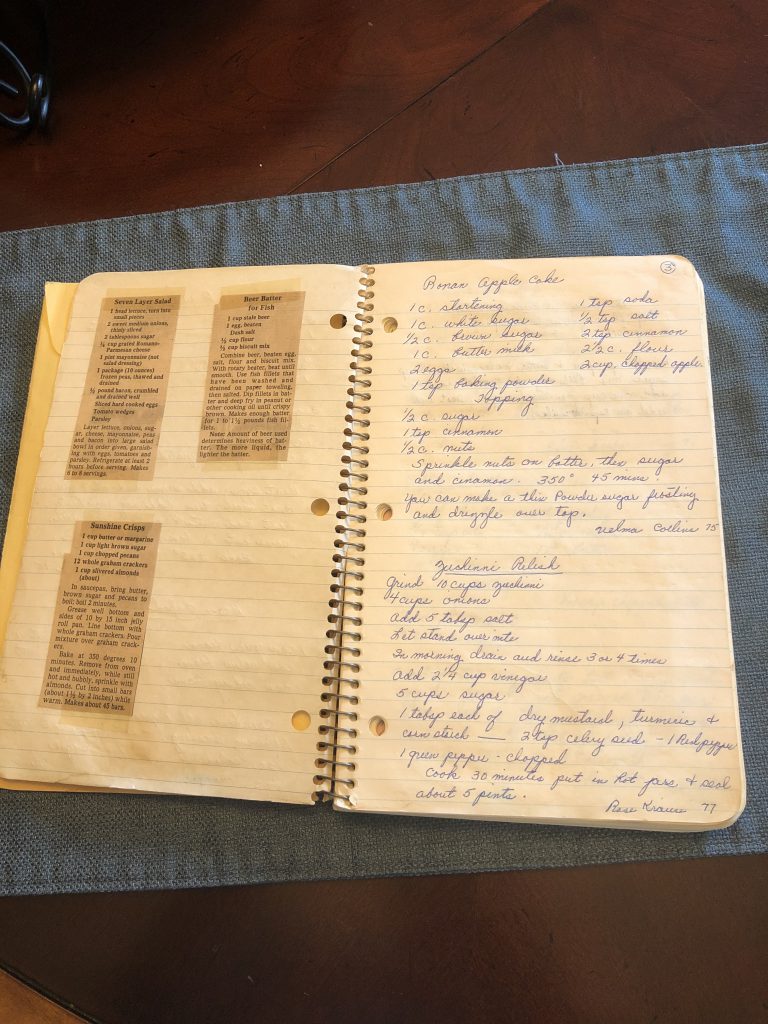 Seven Layer Salad
1 head lettuce, torn into
small pieces
2 sweet medium onions,
thinly sliced
2 tablespoons sugar
cup grated Romano-
Parmesan cheese
1 pint mayonnaise (not
salad dressing)
1 package (10 ounces)
frozen peas, thawed and
drained
½ pound bacon, crumbled
and drained well
Sliced hard cooked eggs
Tomato wedges
Parsley
Layer lettuce, onions, sug-
ar, cheese, mayonnaise, peas
and bacon into large salad
bowl in order given, garnish-
ing with eggs, tomatoes and
parsley. Refrigerate at least 2
hours before serving. Makes
6 to 8 servings.
Beer Batter
for Fish
1 cup stale beer
1 egg, beaten
Dash salt
cup flour
cup biscuit mix
Combine beer, beaten egg,
salt, flour and biscuit mix.
With rotary beater, beat until
smooth. Use fish fillets that
have been washed and
drained on paper toweling,
then salted. Dip fillets in bat-
ter and deep fry in peanut or
other cooking oil until crispy
brown. Makes enough batter
for 1 to 1½ pounds fish fil-
lets.
Note: Amount of beer used
determines heaviness of bat-
ter. The more liquid, the
lighter the batter.
Sunshine Crisps
1 cup butter or margarine
1 cup light brown sugar
1 cup chopped pecans
12 whole graham crackers
1 cup slivered almonds
(about)
In saucepan, bring butter,
brown sugar and pecans to
boil; boil 2 minutes.
Grease well bottom and
sides of 10 by 15 inch jelly
roll pan. Line bottom with
whole graham crackers. Pour
mixture over graham crack-
ers.
Bake at 350 degrees 10
minutes. Remove from oven
and immediately, while still
hot and bubbly, sprinkle with
almonds. Cut into small bars
(about 1½ by 2 inches) while
warm. Makes about 45 bars.
3
Roman Apple Cake
1 c. shortening
1 c. white sugar
½ c. brown sugar
1 c. butter milk
2 eggs
1 tsp baking powder
1 tsp soda
½ tsp salt
2 tsp cinnamon
2½ c. flour
2 cup chopped apples
Topping
½ c. sugar
1 tsp cinnamon
½ c. nuts
Sprinkle nuts on batter, then sugar
and cinamon. 350° 45 mins.
You can make a thin Powder sugar frosting
and drizzle over top.
Velma Collins 75
Zuchinni Relish
Grind 10 cups zuchinni
4 cups onions
Add 5 tabsp salt
Let stand over nite
In morning drain and rinse 3 or 4 times
Add 2¼ cup vinegar
5 cups sugar
1 tabsp each of dry mustard, turmeric &
corn starch — 2 tsp celery seed - 1 Red pepper
1 green pepper - chopped
Cook 30 minutes put in hot jars & seal
about 5 pints.
Rose Krause 77